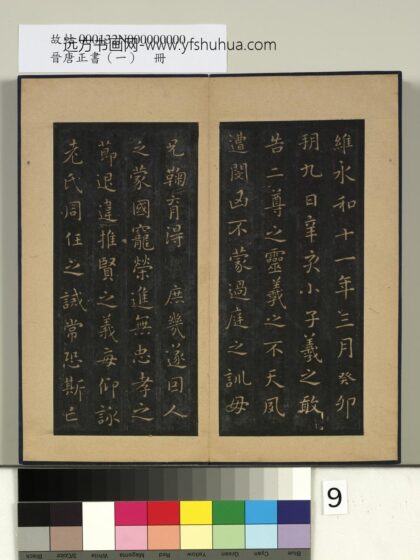 故帖 000132N000000000
远方书画网-www.yfshuhua.com
晉唐正書（一） 冊
維永和十一年三月癸卯
朔九日辛亥小子羲之敢
告二尊之靈羲之不天夙
遭閔凶不蒙過庭之訓母
兄鞠育得 庶幾遂因人
之蒙國寵榮進無忠孝之
節退違推賢之義每仰詠
老氏周任之誡常恐斯亡
9
Blue
Cyan
Green
Yellow
Red
Magenta
White
3/Color
Black